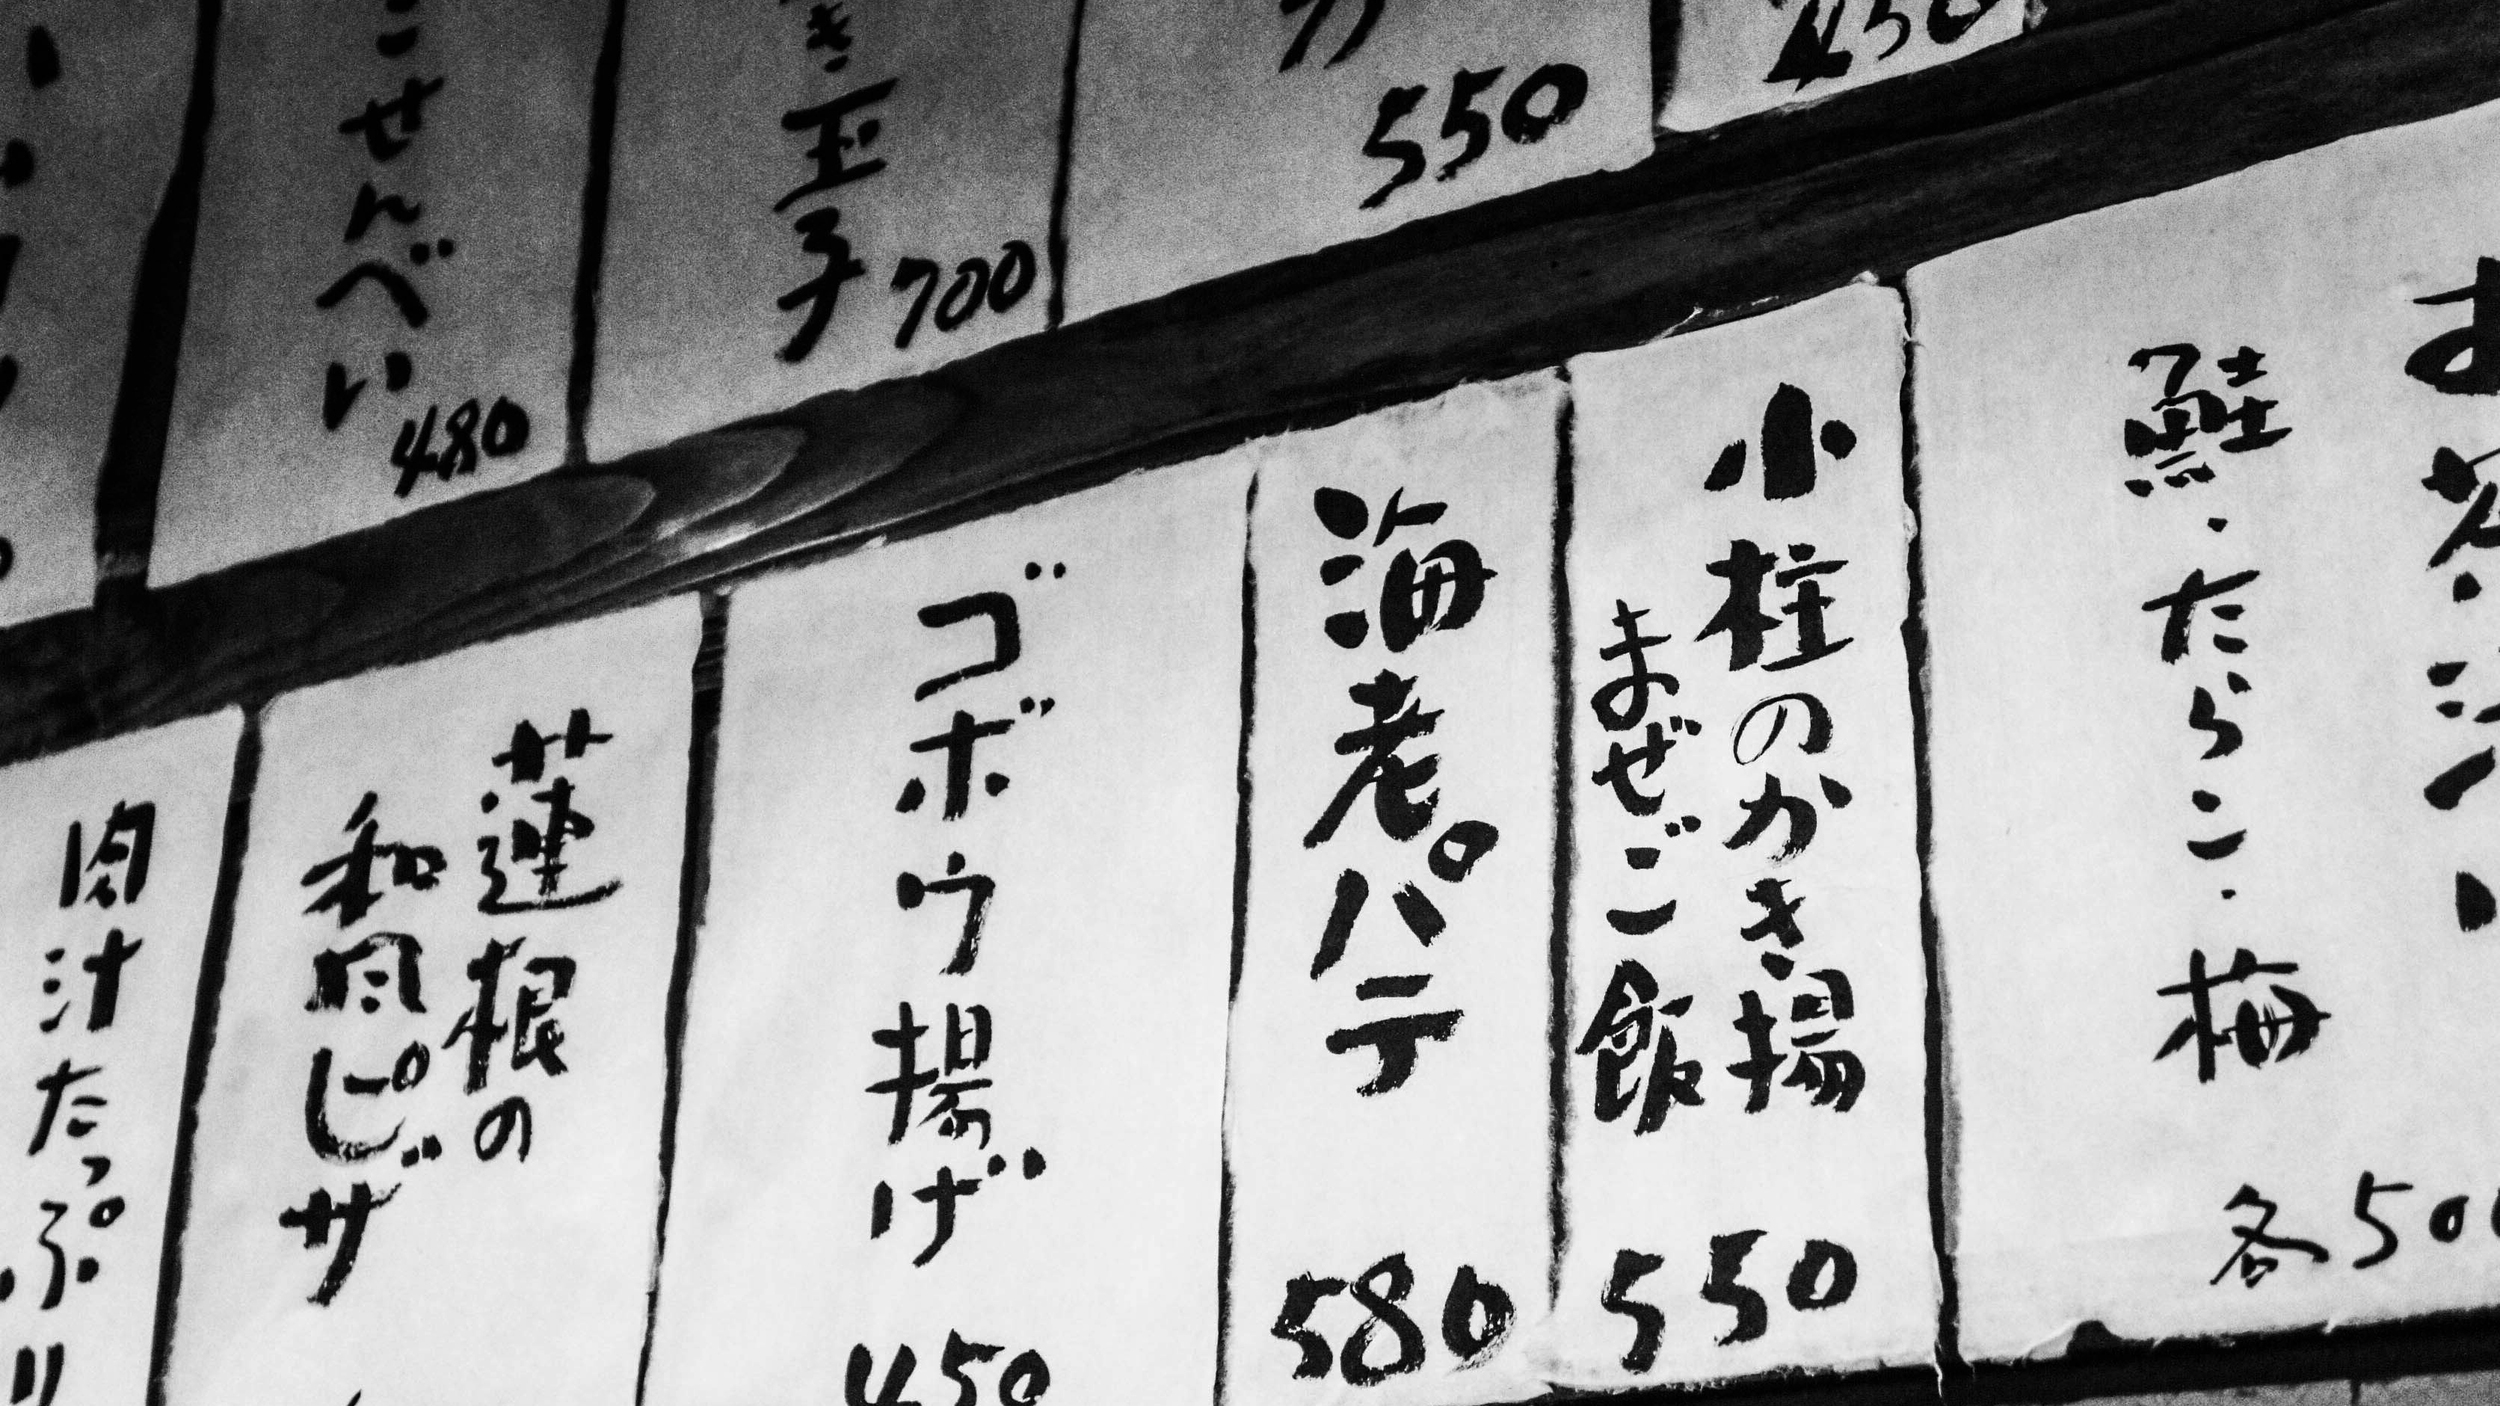 450
550
き玉子
700
こせんべい
480
お茶づけ
鮭・たらこ・梅
各500
小柱のかき揚
まぜご飯
550
海老パテ
580
ゴボウ揚げ
450
蓮根の
和風ピザ
肉汁たっぷり